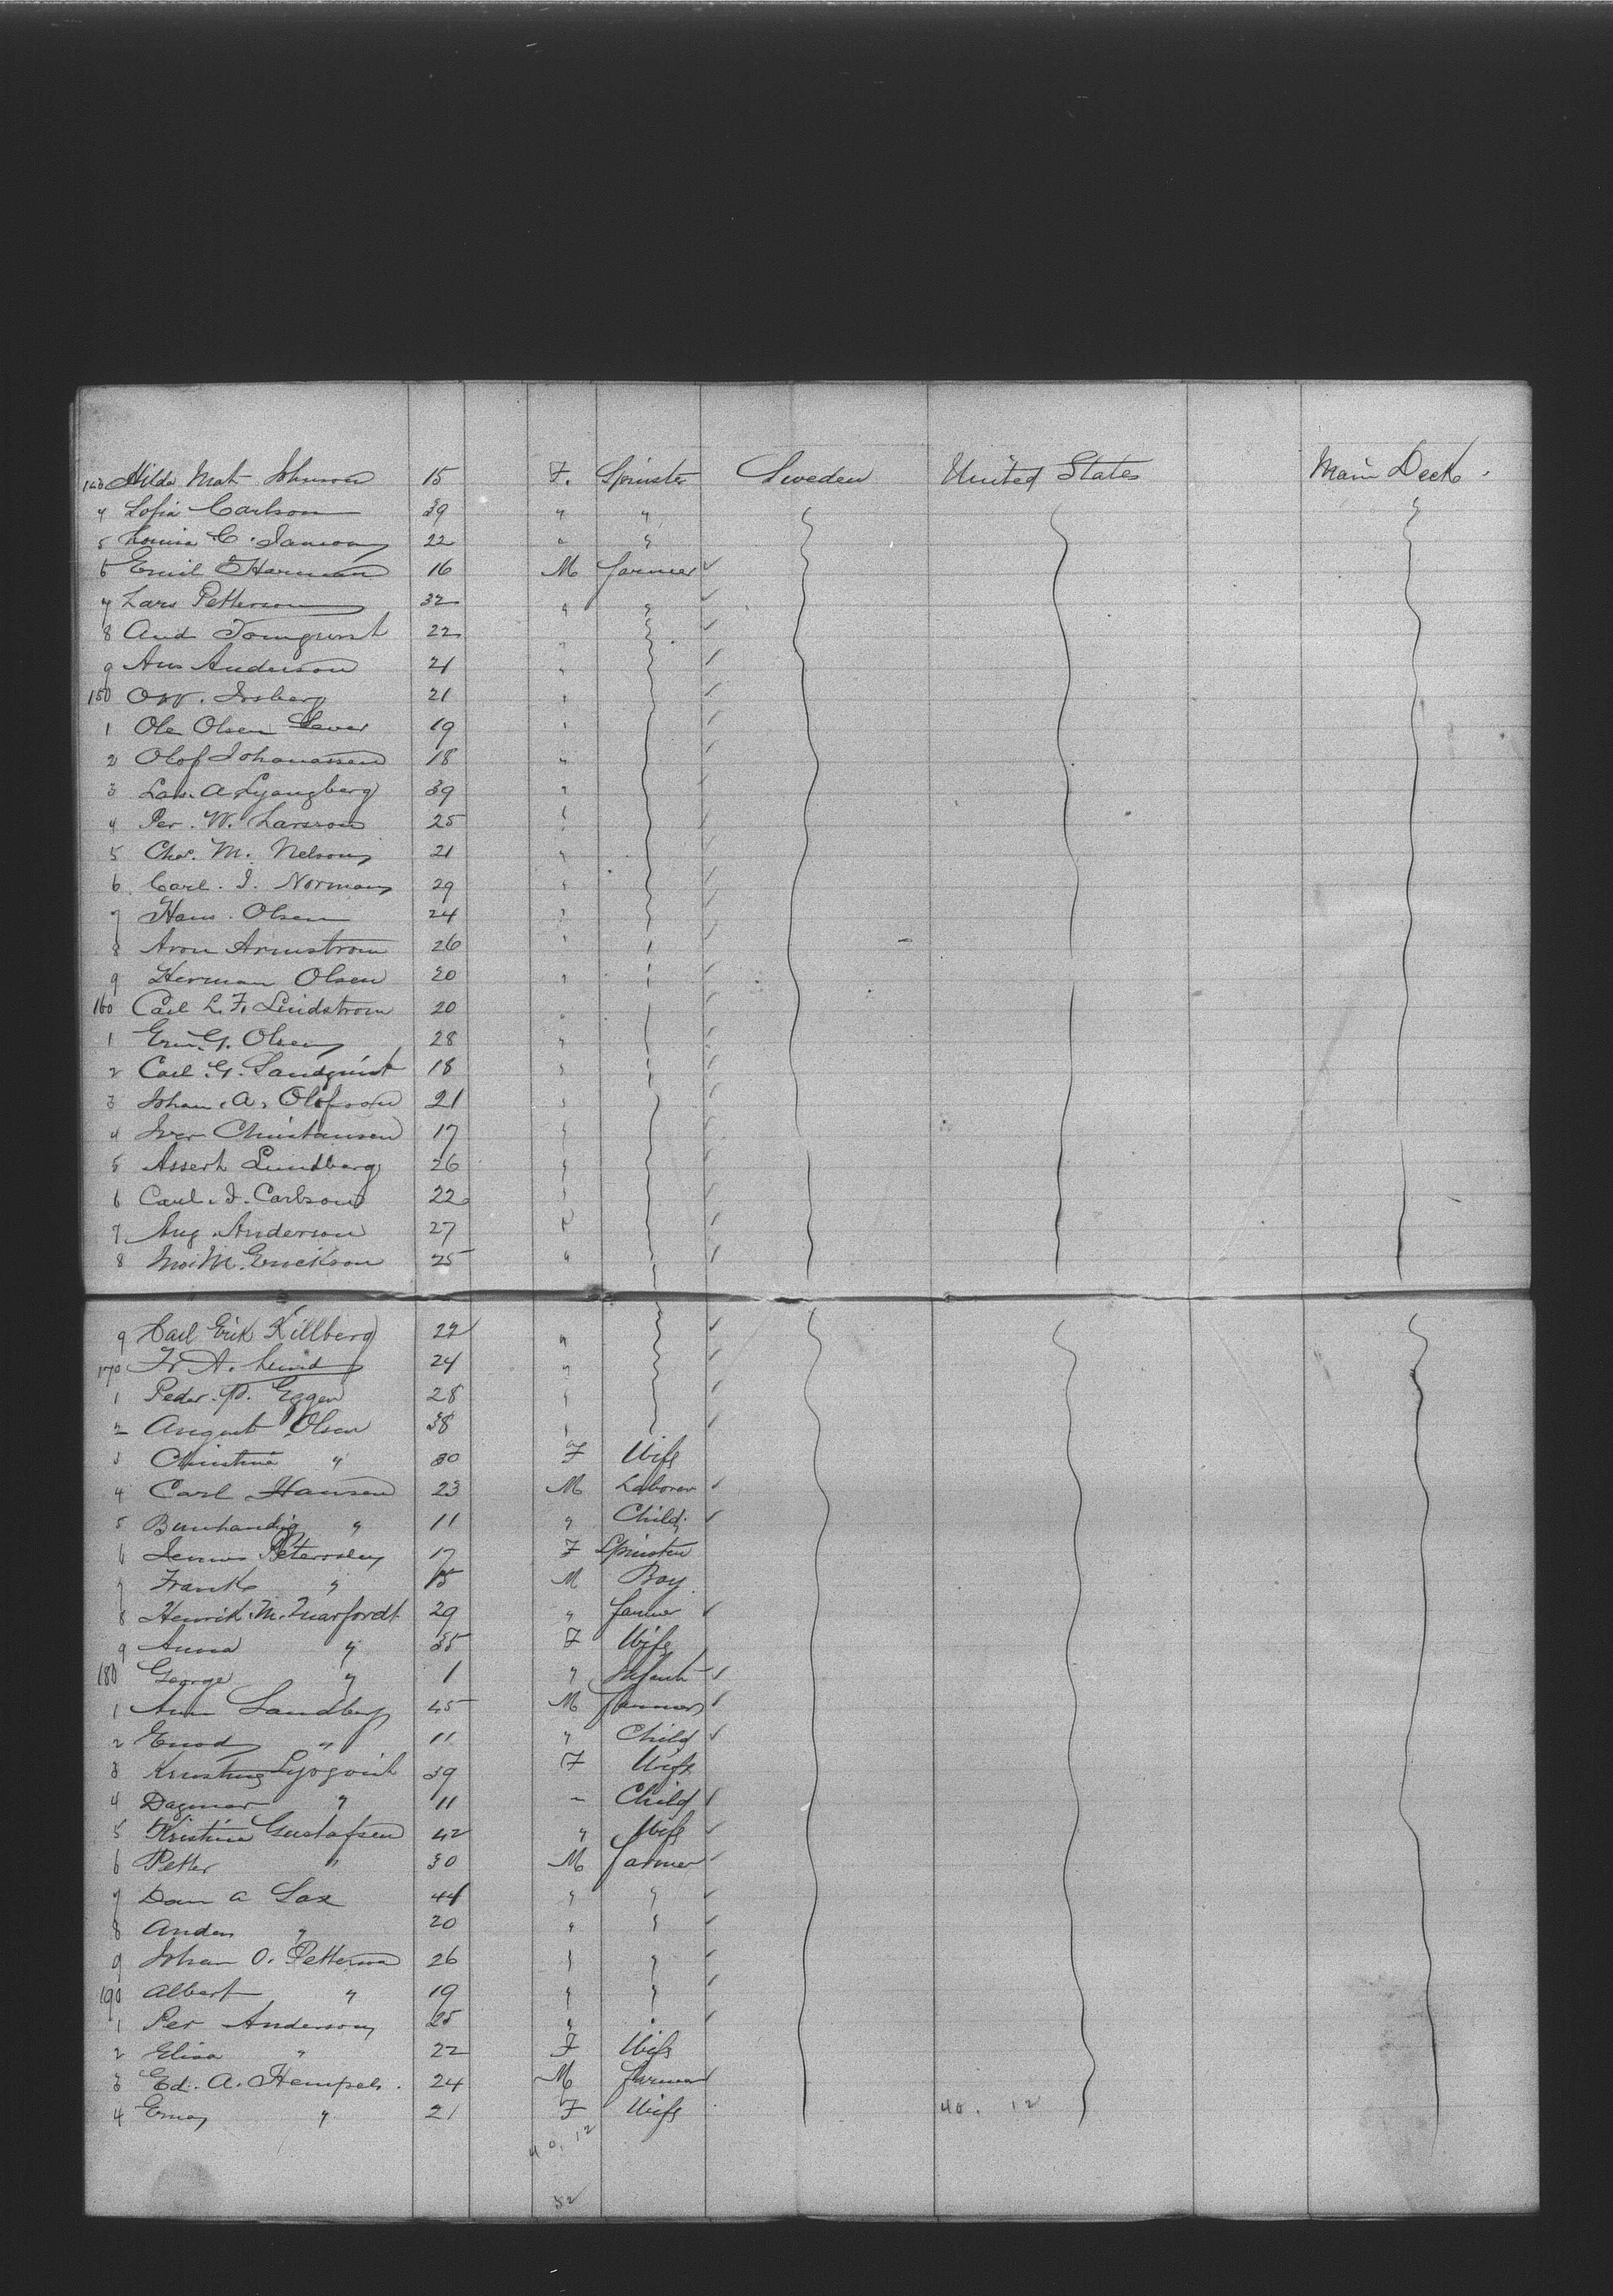 Hilda Mat Johnson 15 F. Spinster Sweden United States Main Deck.
4 Sofia Carlson 39 " "
5 Louisa C. 22 " "
6 Emil Harman 16 M farmer
7 Lars Petterson 32 " "
8 And 22 "
9 Aus Anderson 21 "
150 O.W. 21 "
1 Ole Olsen 19 "
2 Olof Johanassen 18 "
3 Lars. A Lyangberg 39 "
4 Per. W. Larsson 25 "
5 Chas. M. Nelson 21 "
6 Carl. I. Norman 29 "
7 Hans. Olsen 24 "
8 Aron Armstrom 26 "
9 Herman Olsen 20 "
160 Carl L. F. Lindstrom 20 "
1 G. Olsen 28 "
2 Carl. G. Sandquist 18 "
3 Johan. A. Olofson 21 "
4 Iver Christansen 17 "
5 Assert Lundberg 26 "
6 Carl. I. Carlson 22 "
7 Aug. Anderson 27
8 M. Erickson 25 "
9 Carl Erik Killberg 22 "
170 Fr A. Lund 24 "
1 Peder. P. Eggen 28 "
2 August Olsen 38 "
3 Christine " 30 F Wife
4 Carl Hansen 23 M Laborer
5 " 11 " Child
6 Petersen 17 F Spinster
7 Frank " 15 M Boy
8 Henrik. M. Quarfordt 29 " farmer
9 Anna " 35 F Wife
180 George " 1 " Infant
1 Sandberg 45 M farmer
2 " 11 " Child
3 39 F Wife
4 Dagmar " 11 " Child
5 Kristina Gustafsen 42 " Wife
6 Petter " 30 M farmer
7 Dan a Sax 44 " "
8 Anders " 20 " "
9 Johan O. Petterson 26 " "
190 Albert " 19 " "
1 Per Anderson 25 " "
2 Elisa " 22 F Wife
3 Ed. A. Hempels. 24 M farmer
4 " 21 F Wife 40. 12
40. 12
52